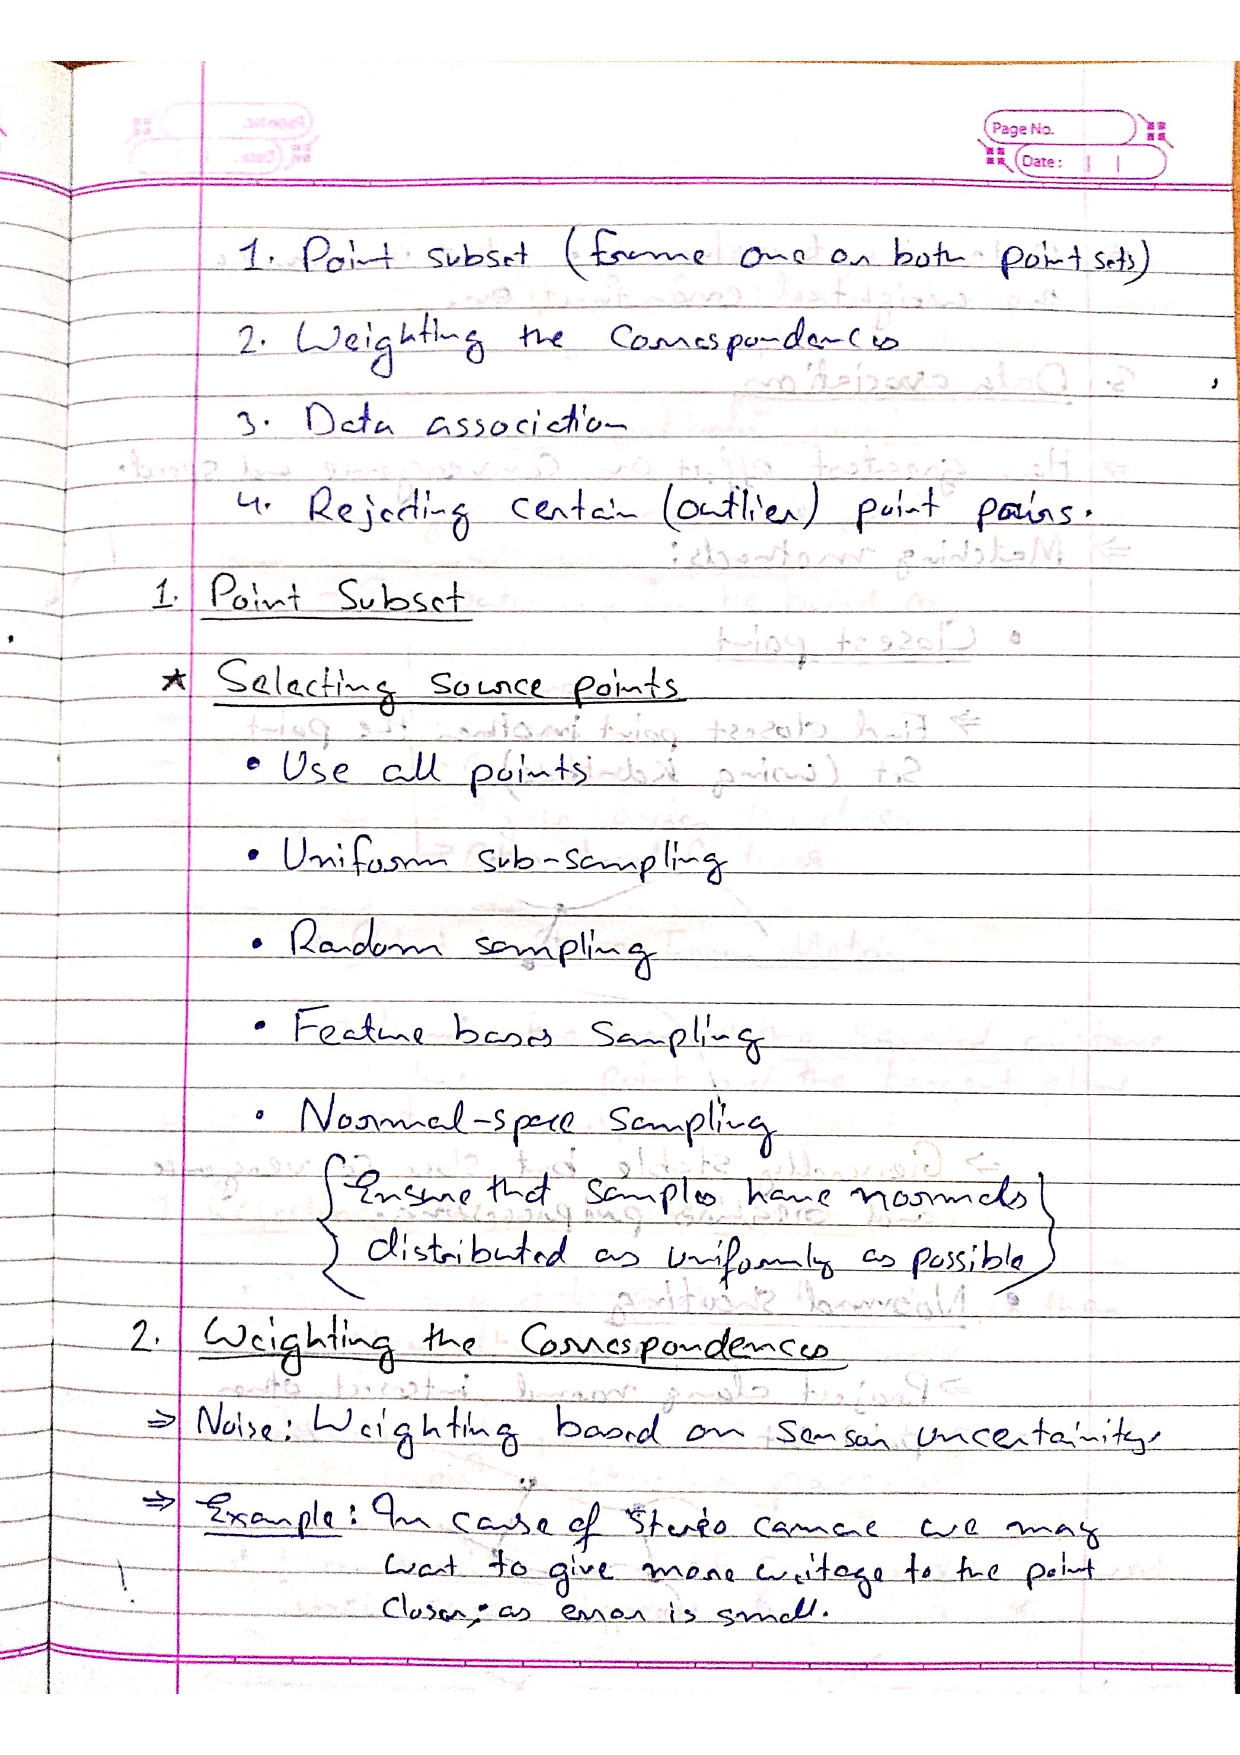 Page No.
Date:
1. Point subset (from one or both point sets)
2. Weighting the Correspondences
3. Data association
4. Rejecting certain (outlier) point pairs.
1. Point Subset
★ Selecting Source points
• Use all points
• Uniform sub-sampling
• Random sampling
• Feature based Sampling
• Normal-space Sampling
{Ensure that samples have normals
distributed as uniformly as possible}
2. Weighting the Correspondences
⇒ Noise: Weighting based on Sensor uncertainity.
⇒ Example: In case of Stereo camera we may
want to give more weitage to the point
closer, as error is small.